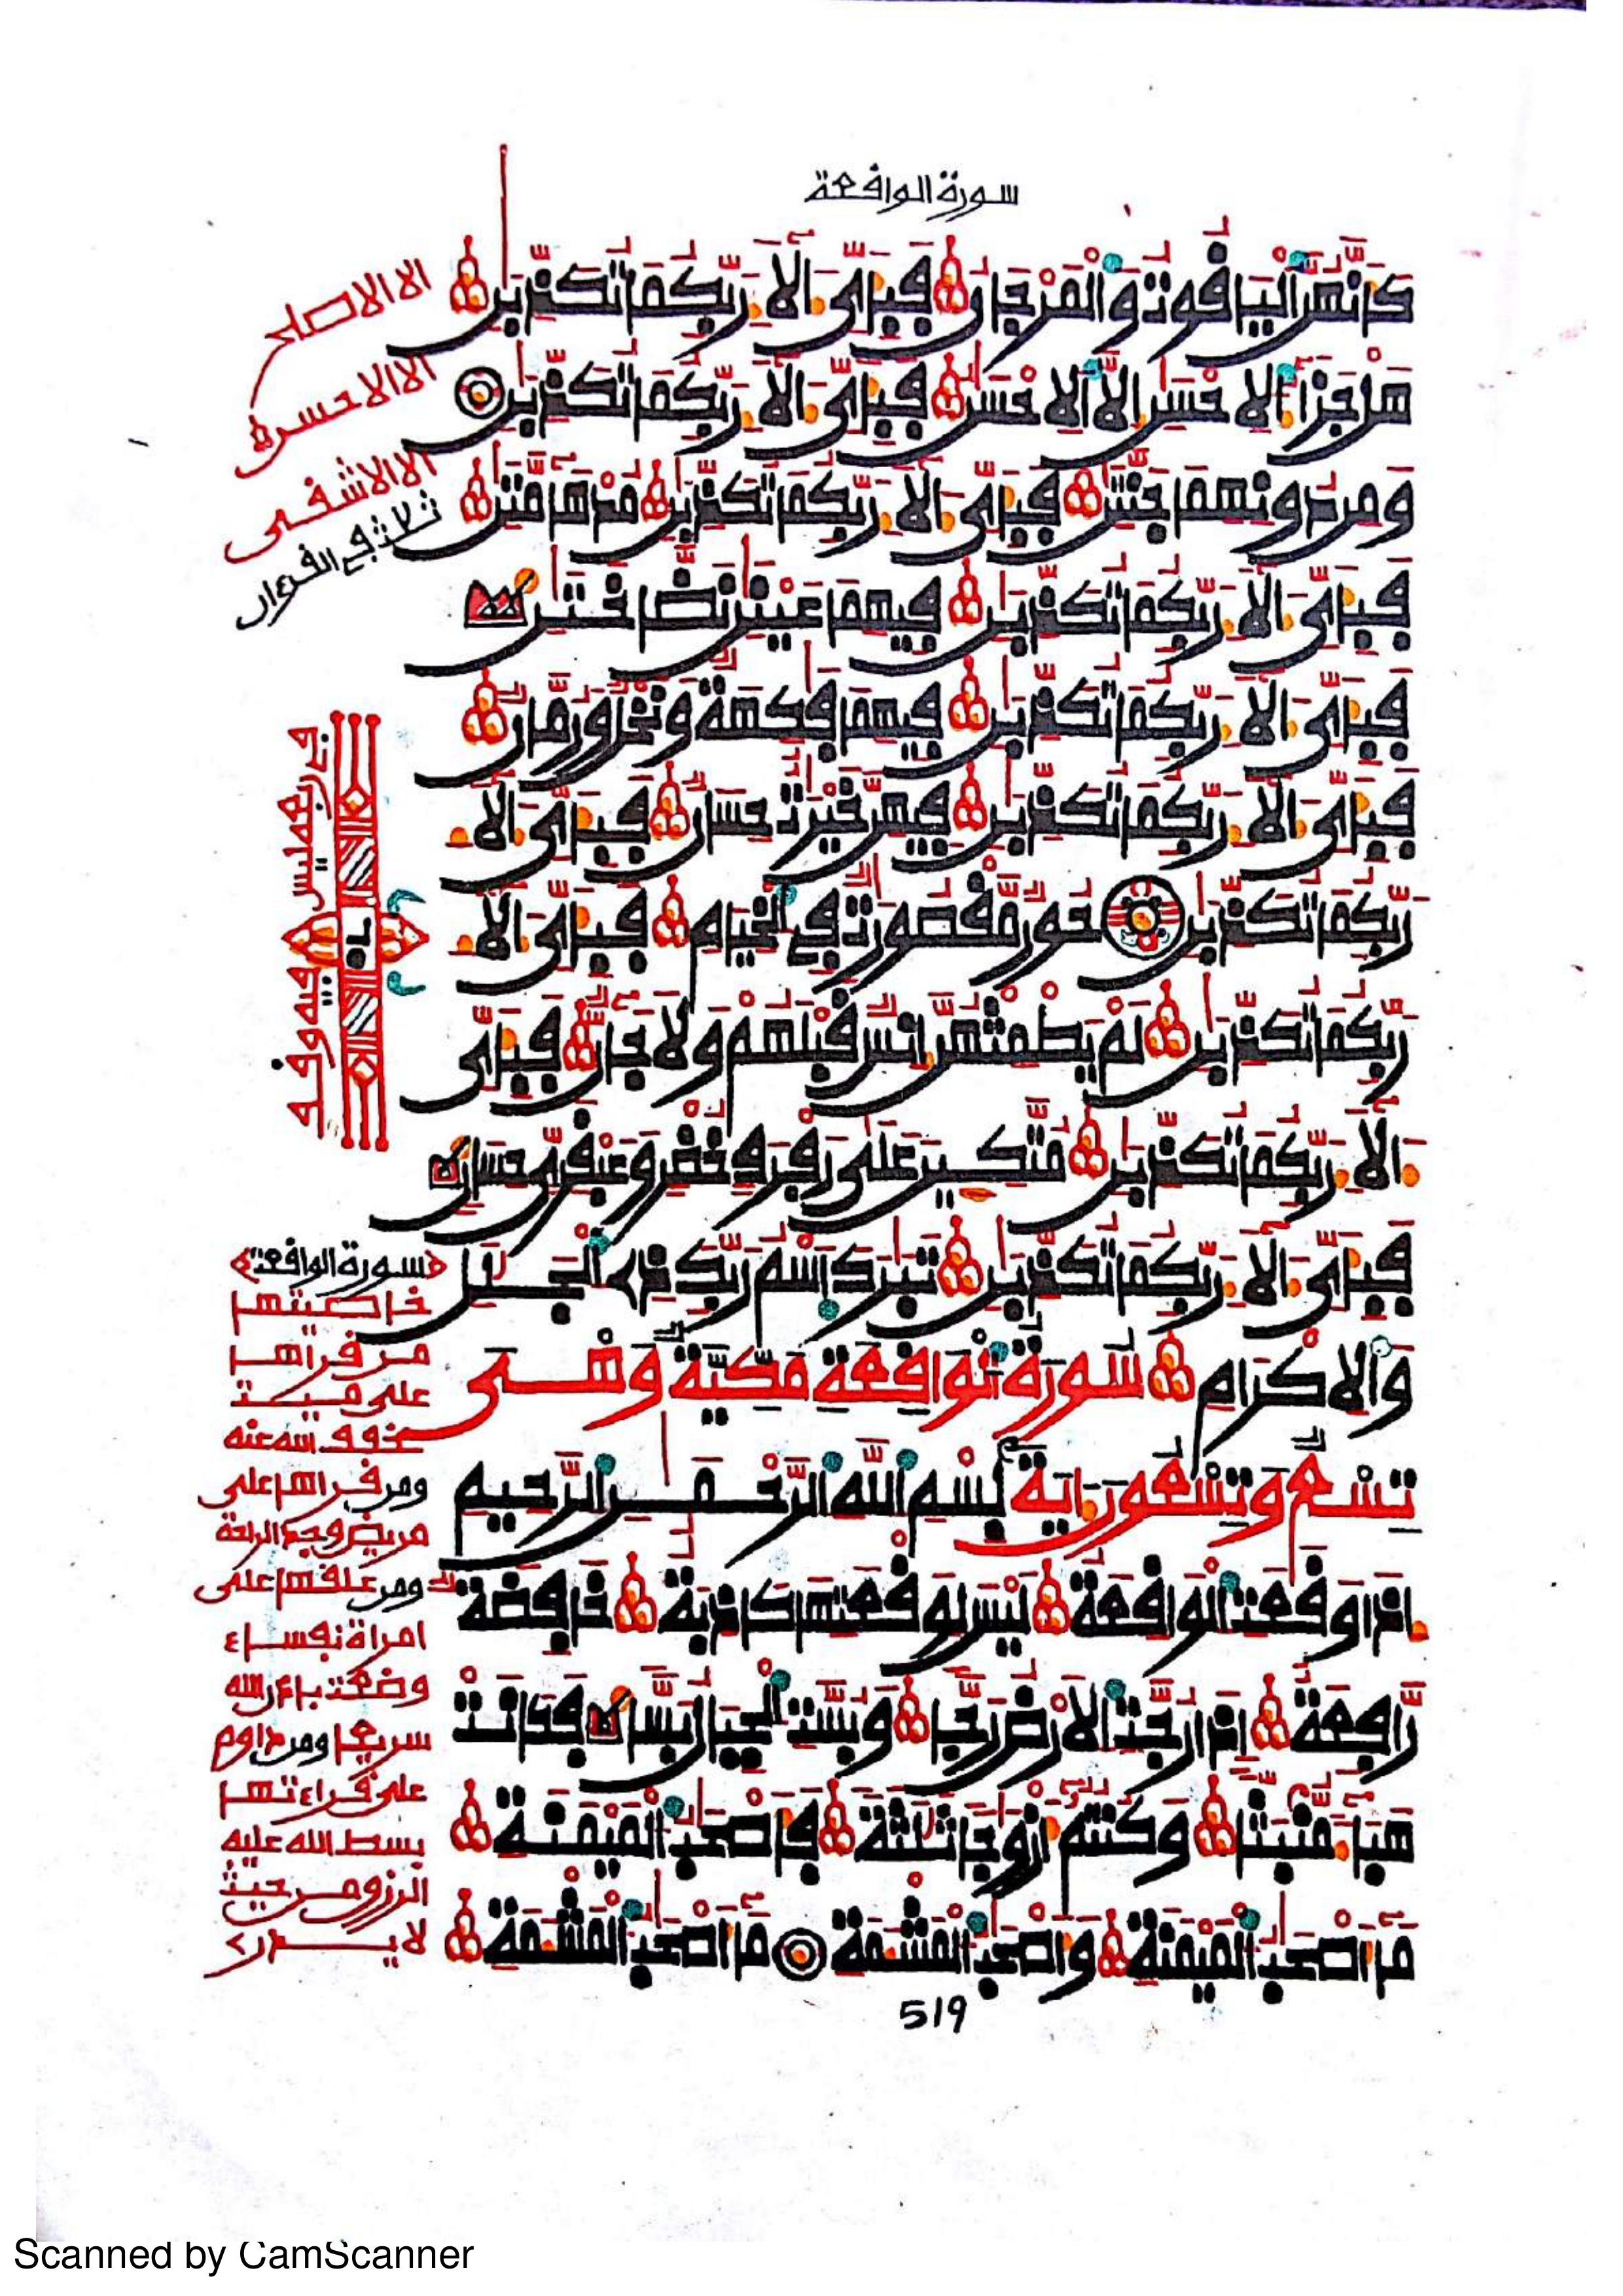 سورة الوافعة
كَأَنَّهُنَّ اَلْيَافُوتُ وَالْمَرْجَانُ فَبِأَيِّ ءَالَآءِ رَبِّكُمَا تُكَذِّبَٰنِ
هَلْ جَزَآءُ اُلِاحْسَٰنِ إِلَّا اَلِاحْسَٰنُ فَبِأَيِّ ءَالَآءِ رَبِّكُمَا تُكَذِّبَٰنِ
وَمِن دُونِهِمَا جَنَّتَٰنِ فَبِأَيِّ ءَالَآءِ رَبِّكُمَا تُكَذِّبَٰنِ مُدْهَآمَّتَٰنِ
فَبِأَيِّ ءَالَآءِ رَبِّكُمَا تُكَذِّبَٰنِ فِيهِمَا عَيْنَٰنِ نَضَّاخَتَٰنِ
فَبِأَيِّ ءَالَآءِ رَبِّكُمَا تُكَذِّبَٰنِ فِيهِمَا فَٰكِهَةٌ وَنَخْلٌ وَرُمَّانٌ
فَبِأَيِّ ءَالَآءِ رَبِّكُمَا تُكَذِّبَٰنِ فِيهِنَّ خَيْرَٰتٌ حِسَانٌ فَبِأَيِّ ءَالَآءِ
رَبِّكُمَا تُكَذِّبَٰنِ حُورٌ مَّفْصُورَٰتٌ فِي اِلْخِيَامِ فَبِأَيِّ ءَالَآءِ
رَبِّكُمَا تُكَذِّبَٰنِ لَمْ يَطْمِثْهُنَّ إِنسٌ فَبْلَهُمْ وَلَا جَآنٌّ فَبِأَيِّ
ءَالَآءِ رَبِّكُمَا تُكَذِّبَٰنِ مُتَّكِـِٕينَ عَلَىٰ رَفْرَفٍ خُضْرٍ وَعَبْفَرِيٍّ حِسَانٍ
فَبِأَيِّ ءَالَآءِ رَبِّكُمَا تُكَذِّبَٰنِ تَبَٰرَكَ اَسْمُ رَبِّكَ ذِي اِلْجَلَٰلِ
وَالِاكْرَامِ سُورَةُ الْوَافِعَةِ مَكِّيَّةٌ وَهْىَ
تِسْعٌ وَتِسْعُونَ ءَايَةً بِسْمِ اللَّهِ الرَّحْمَٰنِ الرَّحِيمِ
إِذَا وَفَعَتِ اِلْوَافِعَةُ لَيْسَ لِوَفْعَتِهَا كَاذِبَةٌ خَافِضَةٌ
رَّافِعَةٌ إِذَا رُجَّتِ اِلَارْضُ رَجّاً وَبُسَّتِ اِلْجِبَالُ بَسّاً فَكَانَتْ
هَبَآءً مُّنۢبَثّاً وَكُنتُمُ أَزْوَٰجاً ثَلَٰثَةً فَأَصْحَٰبُ اُلْمَيْمَنَةِ
مَآ أَصْحَٰبُ اُلْمَيْمَنَةِ وَأَصْحَٰبُ اُلْمَشْـَٔمَةِ مَآ أَصْحَٰبُ اُلْمَشْـَٔمَةِ
519
الا الاصلى
الا الاحسن
الا الاشفى
ثلاث في الفرءان
سورة الوافعة
خاصيتها
من فرأها
على ميت
خفف الله عنه
ومن فرأها على
مريض وجد الراحة
ومن علفها على
امرأة نفساء
وضعت باذن الله
سريعا ومن داوم
على فراءتها
بسط الله عليه
الرزق من حيث
لا يدري
Scanned by CamScanner